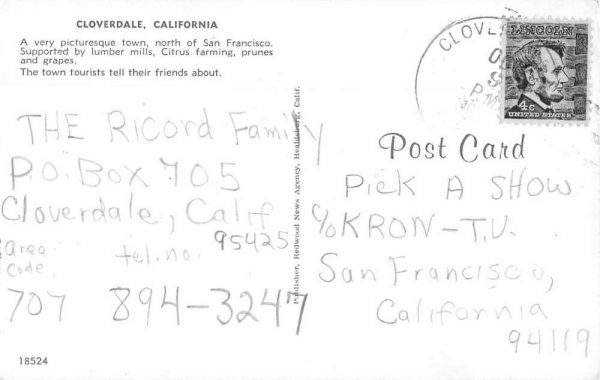 CLOVERDALE, CALIFORNIA
A very picturesque town, north of San Francisco.
Supported by lumber mills, Citrus farming, prunes
and grapes.
The town tourists tell their friends about.
THE Ricord Family
P.O. Box 705
Cloverdale, Calif
95425
area
code
tel. no.
707 894-3247
18524
Publisher, Redwood News Agency, Healdsburg, Calif.
CLOVE
P
LINCOLN
4c
UNITED STATES
Post Card
PicK A SHOW
c/o KRON-T.V.
San Francisco,
California
94119